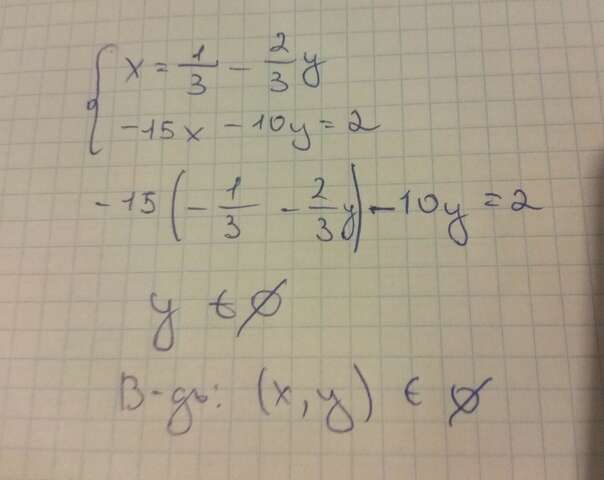 x = 1/3 - 2/3 y
-15x - 10y = 2
-15 (-1/3 - 2/3 y) - 10y = 2
y ∈ ∅
В-дь: (x, y) ∈ ∅